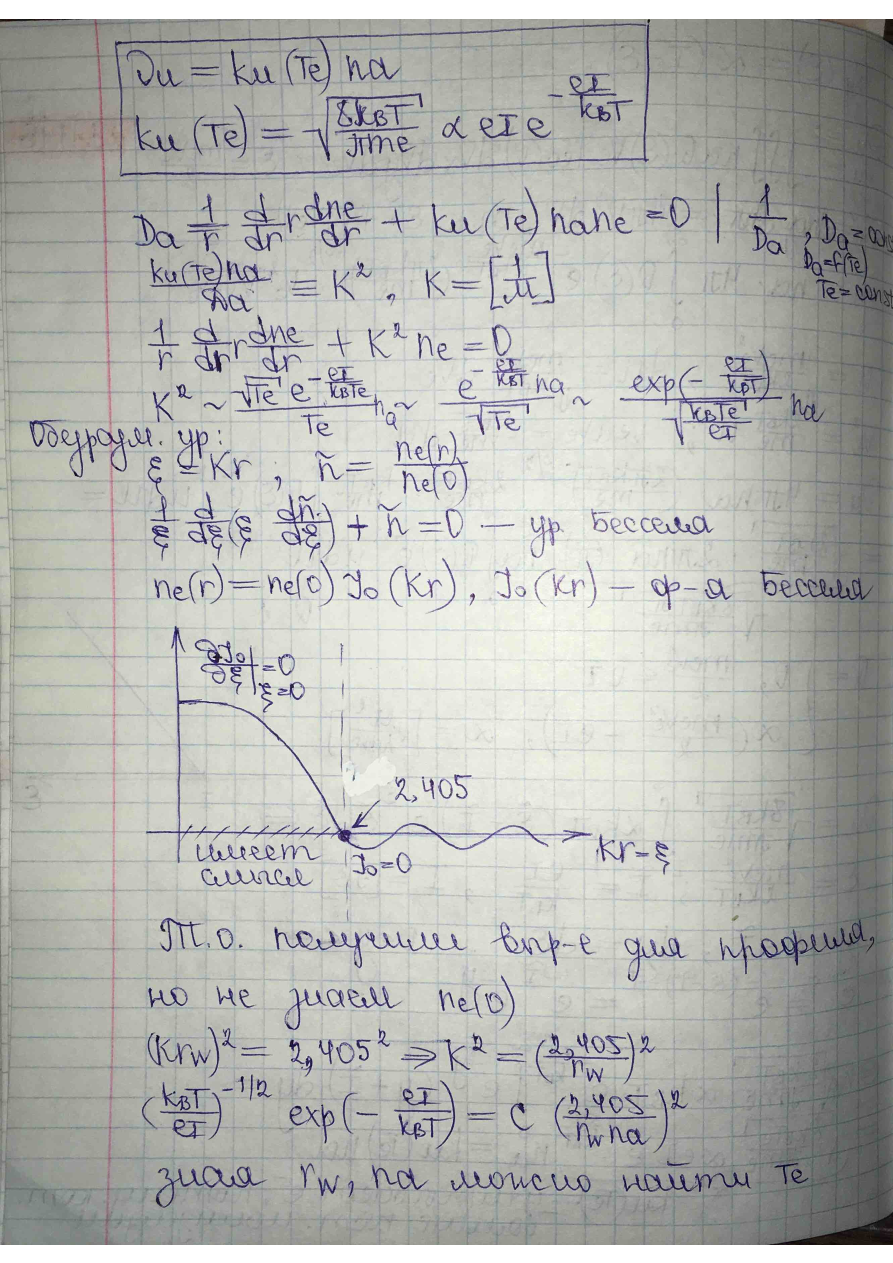 νи = kи (Te) na
kи (Te) = √(8kBT/πme) α eI e^(-eI/kBT)
Da 1/r d/dr r dne/dr + kи (Te) nane = 0 | 1/Da , Da = const
Da = f(Te)
Te = const
kи(Te)na/Da ≡ K², K = [1/м]
1/r d/dr r dne/dr + K² ne = 0
K² ~ √Te e^(-eI/kBTe)/Te na ~ e^(-eI/kBT) na/√Te ~ exp(-eI/kBT)/√(kBTe/eI) na
Обезразм. ур:
ξ = Kr ; ñ = ne(r)/ne(0)
1/ξ d/dξ (ξ dñ/dξ) + ñ = 0 — ур. Бесселя
ne(r) = ne(0) J₀ (Kr), J₀ (Kr) – ф-я Бесселя
∂J₀/∂ξ |ξ=0 = 0
2,405
имеет
смысл
J₀=0
Kr=ξ
Т.о. получили выр-е для профиля,
но не знаем ne(0)
(Krw)² = 2,405² ⇒ K² = (2,405/rw)²
(kBT/eI)^(-1/2) exp(-eI/kBT) = C (2,405/rw na)²
зная rw, na можно найти Te